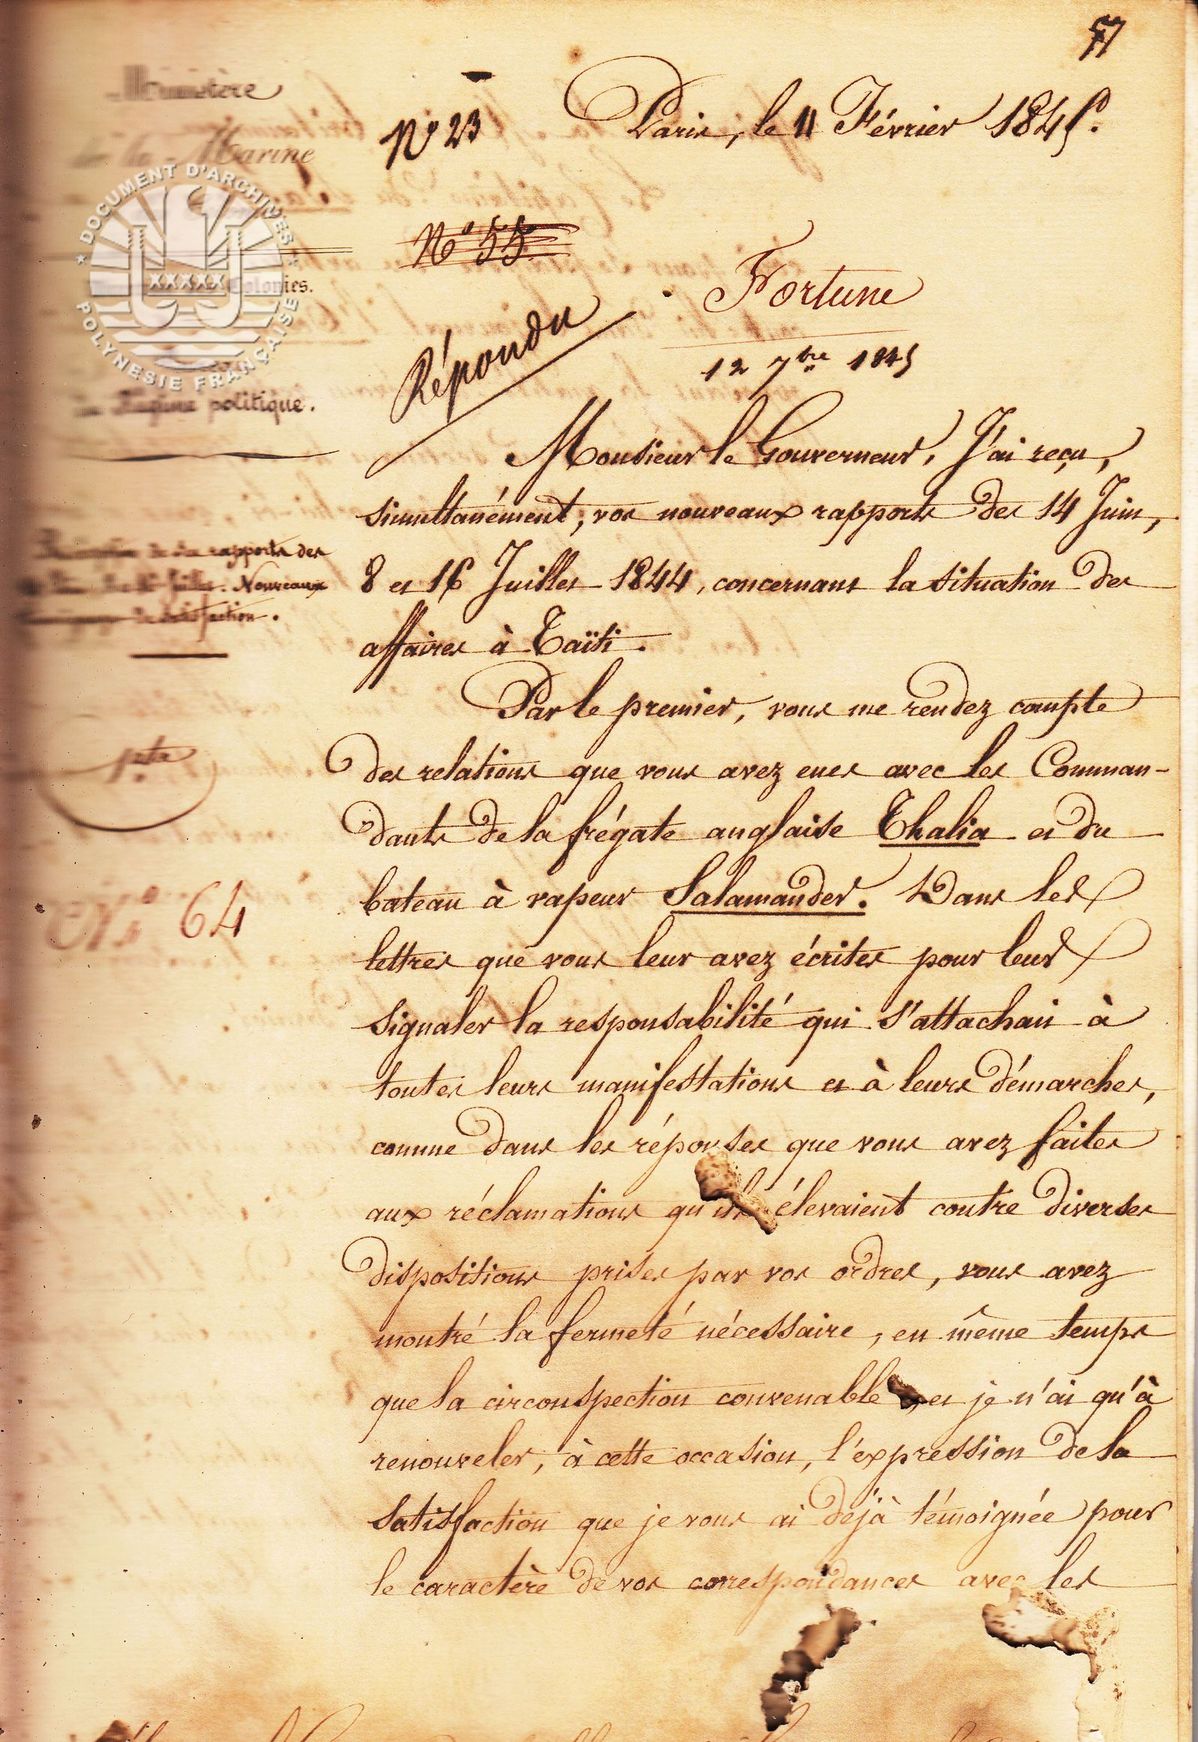 57
Ministère
de la Marine
Colonies.
Régime politique.
DOCUMENT D'ARCHIVES
XXXXX
POLYNESIE FRANÇAISE
N° 23
Paris, le 11 Février 1845.
N° 55
Répondu
Fortune
12 7bre 1845
rapports des
Juillet. Nouveaux
de satisfaction.
N° 64
Monsieur le Gouverneur, J'ai reçu,
simultanément, vos nouveaux rapports des 14 Juin,
8 et 16 Juillet 1844, concernant la situation des
affaires à Taïti.
Par le premier, vous me rendez compte
des relations que vous avez eues avec les Comman-
dants de la frégate anglaise Thalia et du
bateau à vapeur Salamander. Dans les
lettres que vous leur avez écrites pour leur
signaler la responsabilité qui s'attachait à
toutes leurs manifestations et à leurs démarches,
comme dans les réponses que vous avez faites
aux réclamations qu'ils élevaient contre diverses
dispositions prises par vos ordres, vous avez
montré la fermeté nécessaire, en même temps
que la circonspection convenable, et je n'ai qu'à
renouveler, à cette occasion, l'expression de la
satisfaction que je vous ai déjà témoignée pour
le caractère de vos correspondances avec les